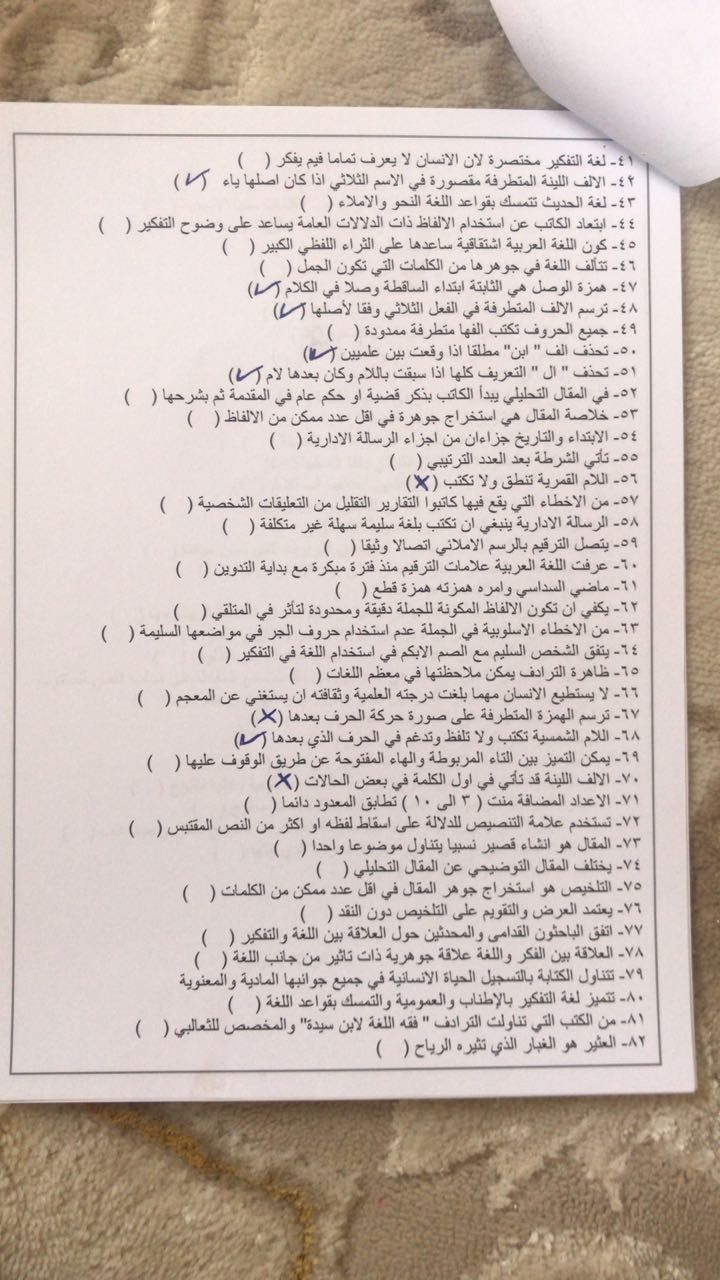 ٤١- لغة التفكير مختصرة لان الانسان لا يعرف تماما فيم يفكر ( )
٤٢- الالف اللينة المتطرفة مقصورة في الاسم الثلاثي اذا كان اصلها ياء (✓)
٤٣- لغة الحديث تتمسك بقواعد اللغة النحو والاملاء ( )
٤٤- ابتعاد الكاتب عن استخدام الالفاظ ذات الدلالات العامة يساعد على وضوح التفكير ( )
٤٥- كون اللغة العربية اشتقاقية ساعدها على الثراء اللفظي الكبير ( )
٤٦- تتألف اللغة في جوهرها من الكلمات التي تكون الجمل ( )
٤٧- همزة الوصل هي الثابتة ابتداء الساقطة وصلا في الكلام (✓)
٤٨- ترسم الالف المتطرفة في الفعل الثلاثي وفقا لأصلها (✓)
٤٩- جميع الحروف تكتب الفها متطرفة ممدودة ( )
٥٠- تحذف الف " ابن" مطلقا اذا وقعت بين علميين (✓)
٥١- تحذف " ال " التعريف كلها اذا سبقت باللام وكان بعدها لام (✓)
٥٢- في المقال التحليلي يبدأ الكاتب بذكر قضية او حكم عام في المقدمة ثم بشرحها ( )
٥٣- خلاصة المقال هي استخراج جوهرة في اقل عدد ممكن من الالفاظ ( )
٥٤- الابتداء والتاريخ جزاءان من اجزاء الرسالة الادارية ( )
٥٥- تأتي الشرطة بعد العدد الترتيبي ( )
٥٦- اللام القمرية تنطق ولا تكتب (✗)
٥٧- من الاخطاء التي يقع فيها كاتبوا التقارير التقليل من التعليقات الشخصية ( )
٥٨- الرسالة الادارية ينبغي ان تكتب بلغة سليمة سهلة غير متكلفة ( )
٥٩- يتصل الترقيم بالرسم الاملائي اتصالا وثيقا ( )
٦٠- عرفت اللغة العربية علامات الترقيم منذ فترة مبكرة مع بداية التدوين ( )
٦١- ماضي السداسي وامره همزته همزة قطع ( )
٦٢- يكفي ان تكون الالفاظ المكونة للجملة دقيقة ومحدودة لتأثر في المتلقي ( )
٦٣- من الاخطاء الاسلوبية في الجملة عدم استخدام حروف الجر في مواضعها السليمة ( )
٦٤- يتفق الشخص السليم مع الصم الابكم في استخدام اللغة في التفكير ( )
٦٥- ظاهرة الترادف يمكن ملاحظتها في معظم اللغات ( )
٦٦- لا يستطيع الانسان مهما بلغت درجته العلمية وثقافته ان يستغني عن المعجم ( )
٦٧- ترسم الهمزة المتطرفة على صورة حركة الحرف بعدها (✗)
٦٨- اللام الشمسية تكتب ولا تلفظ وتدغم في الحرف الذي بعدها (✓)
٦٩- يمكن التميز بين التاء المربوطة والهاء المفتوحة عن طريق الوقوف عليها ( )
٧٠- الالف اللينة قد تأتي في اول الكلمة في بعض الحالات (✗)
٧١- الاعداد المضافة منت ( ٣ الى ١٠ ) تطابق المعدود دائما ( )
٧٢- تستخدم علامة التنصيص للدلالة على اسقاط لفظه او اكثر من النص المقتبس ( )
٧٣- المقال هو انشاء قصير نسبيا يتناول موضوعا واحدا ( )
٧٤- يختلف المقال التوضيحي عن المقال التحليلي ( )
٧٥- التلخيص هو استخراج جوهر المقال في اقل عدد ممكن من الكلمات ( )
٧٦- يعتمد العرض والتقويم على التلخيص دون النقد ( )
٧٧- اتفق الباحثون القدامى والمحدثين حول العلاقة بين اللغة والتفكير ( )
٧٨- العلاقة بين الفكر واللغة علاقة جوهرية ذات تاثير من جانب اللغة ( )
٧٩- تتناول الكتابة بالتسجيل الحياة الانسانية في جميع جوانبها المادية والمعنوية
٨٠- تتميز لغة التفكير بالإطناب والعمومية والتمسك بقواعد اللغة ( )
٨١- من الكتب التي تناولت الترادف " فقه اللغة لابن سيدة" والمخصص للثعالبي ( )
٨٢- العثير هو الغبار الذي تثيره الرياح ( )